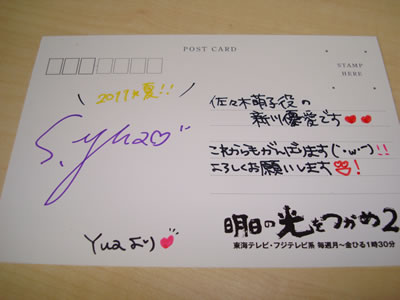 POST CARD
STAMP
HERE
2011★夏!!
S.Yua♡
佐々木萌子役の
新川優愛です❤❤
これからもがんばります(`･ω･´)!!
よろしくお願いします!
Yuaより❤
明日の光をつかめ2
東海テレビ・フジテレビ系 毎週月〜金ひる1時30分